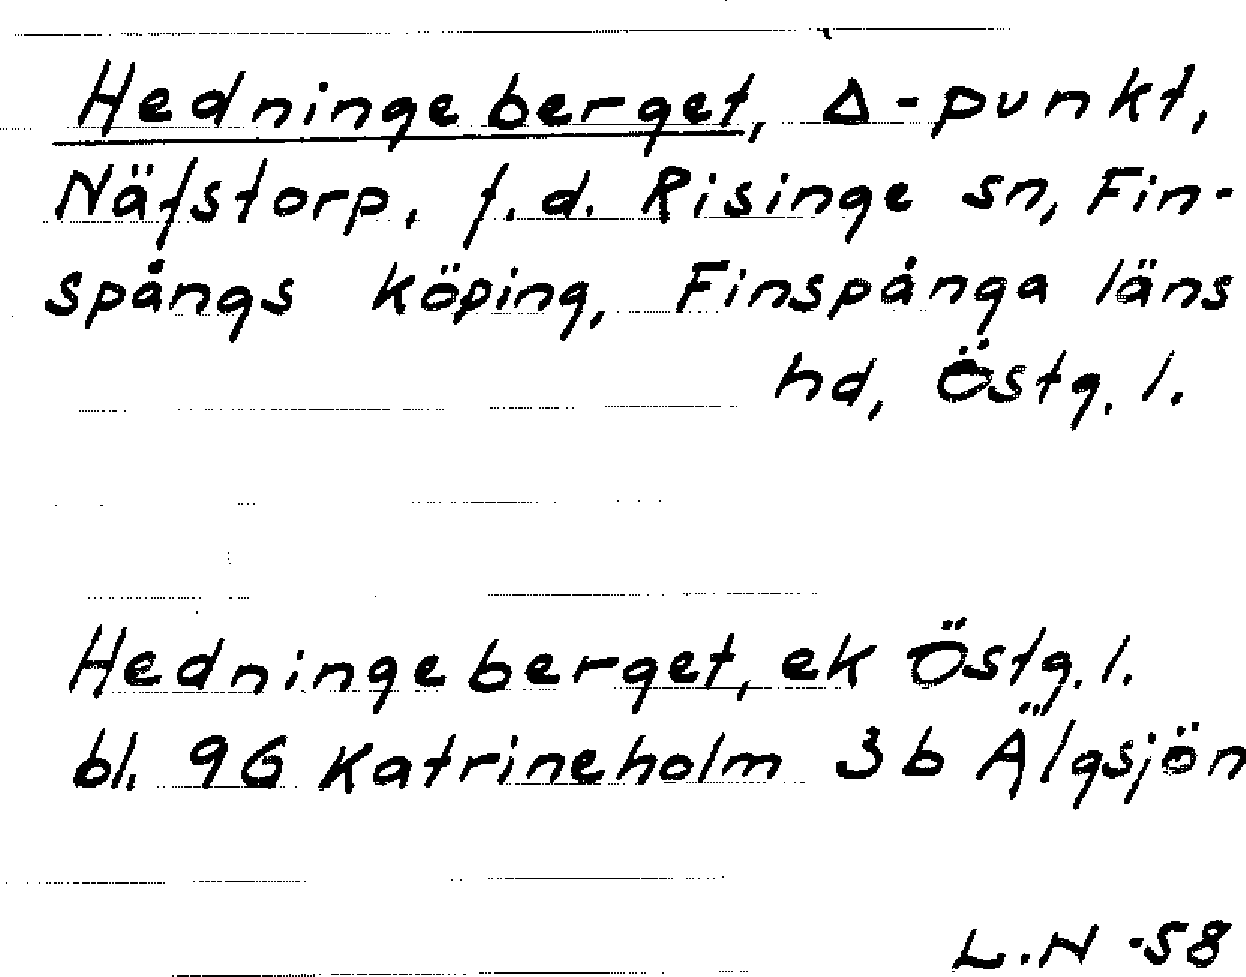 Hedningeberget, Δ-punkt,
Näfstorp, f.d. Risinge sn, Fin-
spångs köping, Finspånga läns
hd, Östg. l.
Hedningeberget, ek Östg. l.
bl. 9G Katrineholm 3b Älgsjön
L.N -58